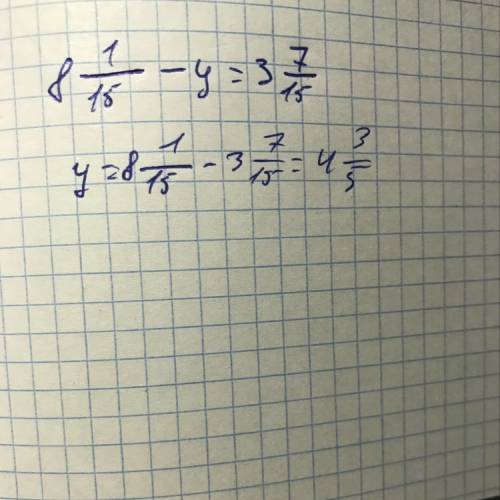 8 1/15 - y = 3 7/15
y = 8 1/15 - 3 7/15 = 4 3/5